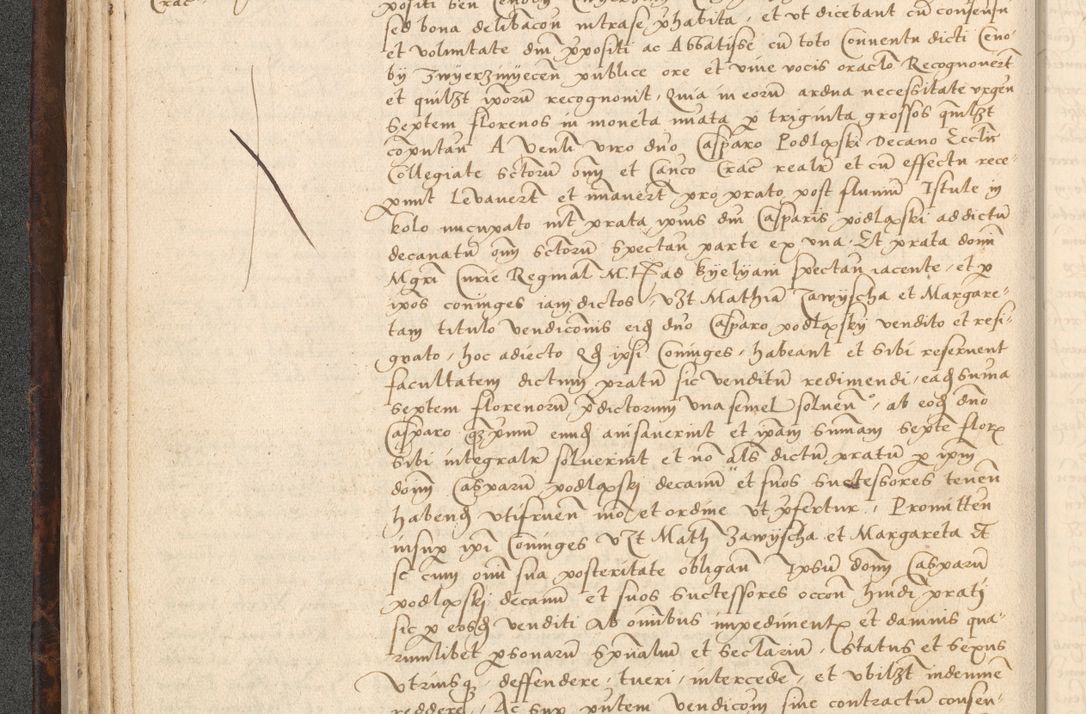 Crac
sed bona delibacon intrase prehabita, et ut dicebant cu consensu
et voluntate dni prepositi ac Abbatisse cu toto Conventu dicti Ceno-
by Zwyerzinyecen publice ore et vive vocis oraclo Recognovert
et quilzt iporu recognovit, Quia in eoru ardua necessitate urgen
Septem florenos in moneta nuata p triginta grossos qmlzt
coputan A Venli viro dno Casparo Podlqski Decano Ecclie
Collegiate Sctoru Oim et Canco Crac realr et cu effectu rece-
punt Levavert et manavert pro prato post fluviu Istule in
kolo nucupato int prata ipius dni Casparis podlqski ad dictu
decanatu oim Sctoru Spectan parte ex una, Et prata domi
Mgri Curie Reginal M. ad kyelyam spectan iacente, et p
ipos coniuges iam dictos, uzt Mathia Zawyscha et Margare-
tam titulo vendiconis eidem dno Casparo podlqsky vendito et resi-
gnato, hoc adiecto Qd ipsi Coniuges, habeant et sibi reservent
facultatem dictum pratu sic venditu redimendi, eadem summa
Septem florenoru predictorum una semel solven, ab eodem dno
Casparo qzprimu eundem avisaverint et ipam Summam Septe flor
Sibi integralr solverint et no als dictu pratu p ipm
domi Casparu podlqski decanu et suos Suctessores tenen
habend utifruen mo et ordine ut prefertur, Promitten
insup ipi Coniuges uzt Math Zawyscha et Margareta Et
se cum omi sua posteritate obligan Ipsu domi Casparu
podlqski decanu et suos Suctessores occon huiudi prati
sic p eosdem venditi Ab omibus impediment et damnis qua-
rumlibet psonaru Spualiu et Seclariu, Status et Sexus
Utriusque, deffendere, tueri, intercede, et ubilzt indemne
reddere, Ac Sup putem vendicom sive contractu consen-